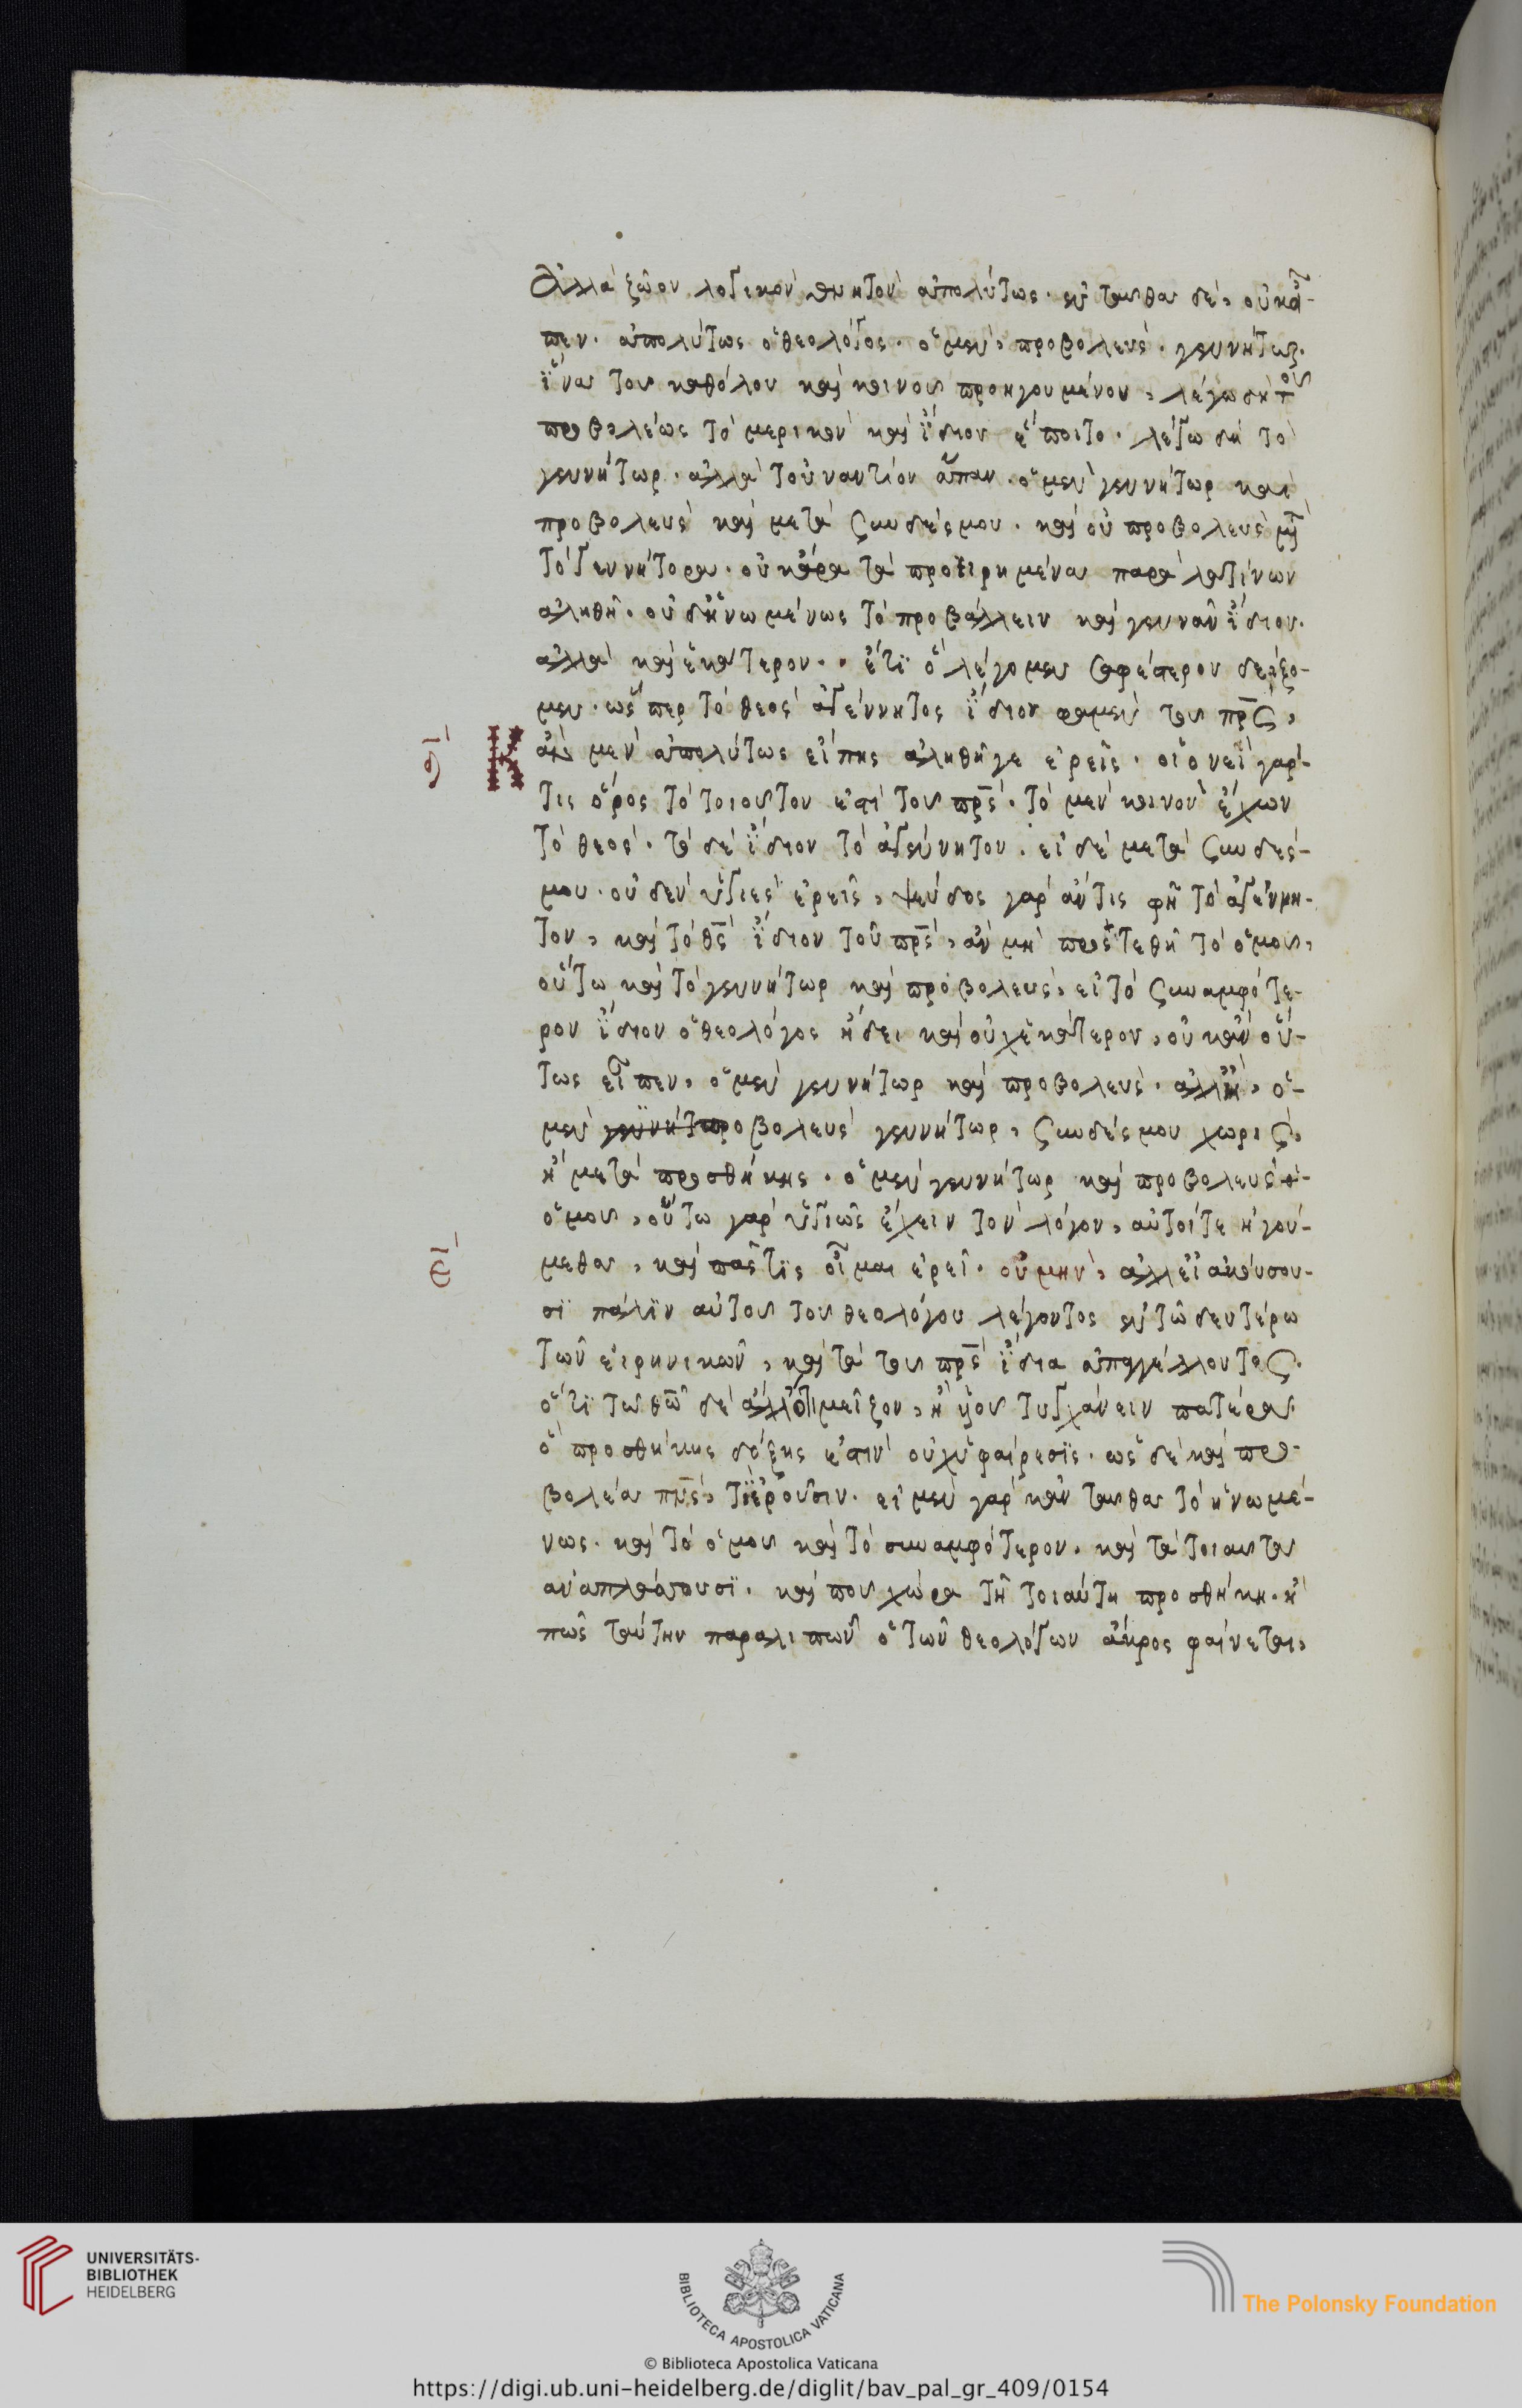 ἀλλὰ ζῶον λογικὸν θνητὸν ἀπολύτως· ἐνταῦθα δὲ, οὐκ εἶ-
πεν· ἀπολύτως ὁ θεολόγος· ὁ μὲν, προβολεὺς· γεννήτωρ·
ἵνα τοῦ καθόλου καὶ κοινοῦ προηγουμένου, λέγω δὴ τοῦ
προβολέως τὸ μερικὸν καὶ ἴδιον ἕποιτο· λέγω δὴ τὸ
γεννήτωρ· ἀλλὰ τοὐναντίον ἅπαν· ὁ μὲν γεννήτωρ καὶ
προβολεὺς καὶ μετὰ συνδέσμου· καὶ οὐ προβολεὺς μὴ
τὸ γεννήτορα· οὐκ ἄρα τὰ προειρημένα παρὰ λατίνων
ἀληθῆ· οὐδ' ἡνωμένως τὸ προβάλλειν καὶ γεννᾶν ἴδιον·
ἀλλὰ καὶ ἑκάτερον·· ἔτι ὃ λέγομεν σαφέστερον δείξο-
μεν· ὥσπερ τὸ θεὸς ἀγέννητος ἴδιον φαμὲν τοῦ πρς,
δ
Κ
ἂν μὲν ἀπολύτως εἴπης ἀληθῆ γε ἐρεῖς· οἱονεὶ γάρ
τις ὅρος τὸ τοιοῦτον ἐστὶ τοῦ πρς· τὸ μὲν κοινὸν ἔχων
τὸ θεὸς· τὸ δὲ ἴδιον τὸ ἀγέννητον· εἰ δὲ μετὰ συνδέσ-
μου· οὐδὲν ὑγιὲς ἐρεῖς, ψεῦδος γὰρ ἄν τις φῆ τὸ ἀγέννη-
τον, καὶ τὸ θς ἴδιον τοῦ πρς, ἂν μὴ προστεθῆ τὸ ὁμοῦ,
οὕτω καὶ τὸ γεννήτωρ καὶ προβολεὺς, εἰ τὸ συναμφότε-
ρον ἴδιον ὁ θεολόγος ἤδει καὶ οὐχ ἑκάτερον, οὐκ ἂν οὕ-
τως εἶπεν, ὁ μὲν γεννήτωρ καὶ προβολεὺς· ἀλλ' ἢ, ὁ
μὲν γεννήτωρ προβολεὺς γεννήτωρ, συνδέσμου χωρὶς,
ἢ μετὰ προσθήκης· ὁ μὲν γεννήτωρ καὶ προβολεὺς
ὁμοῦ, οὕτω γὰρ ὑγιῶς ἔχειν τὸν λόγον, αὐτοί τε ἡγού-
ε
μεθα, καὶ πᾶς τις οἶμαι ἐρεῖ· οὐ μὴν, ἀλλ' εἰ ἀκούσου-
σι πάλιν αὐτοῦ τοῦ θεολόγου λέγοντος ἐν τῶ δευτέρω
τῶν εἰρηνικῶν, καὶ τὰ τοῦ πρς ἴδια ἀπαγγέλλοντος·
ὅτι τῶ θῶ δὲ ἆλλό τι μεῖζον, ἢ υἱοῦ τυγχάνειν πατέρα
ὃ προσθήκης δόξης ἐστὶν οὐχ ὑφαίρεσις· ὡς δὲ καὶ προ-
βολέα πνς, τί ἐροῦσιν· εἰ μὲν γὰρ κἀνταῦθα τὸ ἡνωμέ-
νως· καὶ τὸ ὁμοῦ καὶ τὸ συναμφότερον· καὶ τὰ τοιαῦτα
ἀναπλάττουσι· καὶ ποῦ χώρα τῆ τοιαύτη προσθήκη· ἢ
πῶς ταύτην παραλιπὼν ὁ τῶν θεολόγων ἄκρος φαίνεται,
UNIVERSITÄTS-
BIBLIOTHEK
HEIDELBERG
BIBLIOTECA APOSTOLICA VATICANA
The Polonsky Foundation
© Biblioteca Apostolica Vaticana
https://digi.ub.uni-heidelberg.de/diglit/bav_pal_gr_409/0154